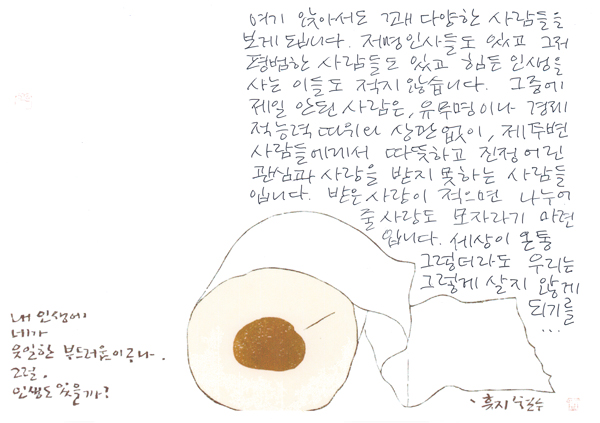 여기 앉아서도 꽤 다양한 사람들을
보게 됩니다. 저명인사들도 있고 그저
평범한 사람들도 있고 힘든 인생을
사는 이들도 적지않습니다. 그중에
제일 안된 사람은, 유무명이나 경제
적능력 따위와 상관없이, 제주변
사람들에게서 따뜻하고 진정어린
관심과 사랑을 받지 못하는 사람들
입니다. 받은 사랑이 적으면 나누어
줄 사랑도 모자라기 마련
입니다. 세상이 온통
그렇더라도 우리는
그렇게 살지 않게
되기를
...
내 인생에
네가
유일한 부드러움이구나.
그럼.
인생도 있을까?
휴지